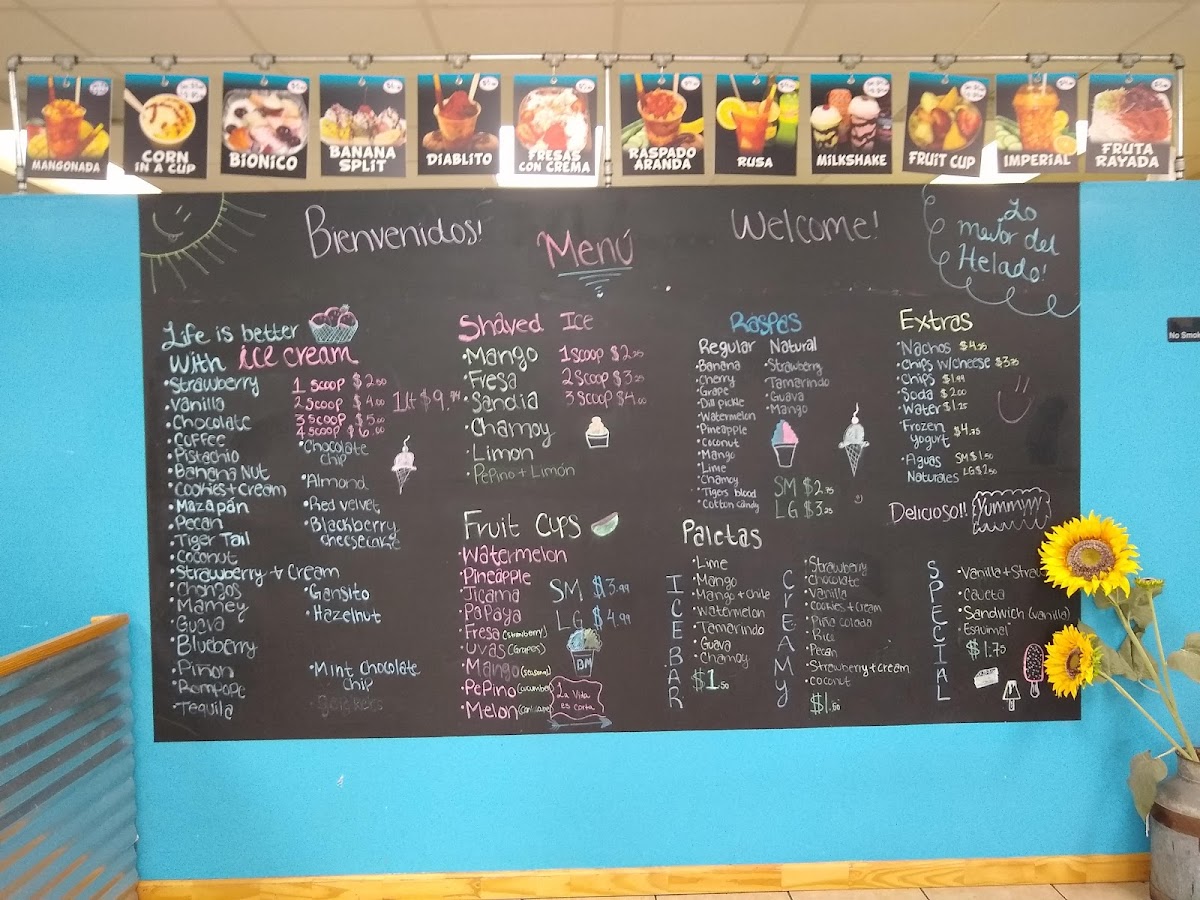 MANGONADA
CORN
IN A CUP
BIONICO
BANANA
SPLIT
DIABLITO
FRESAS
CON CREMA
RASPADO
ARANDA
RUSA
MILKSHAKE
FRUIT CUP
IMPERIAL
FRUTA
RAYADA
Bienvenidos!
Menú
Welcome!
Lo
mejor del
Helado!
Life is better
with ice cream
•Strawberry
•Vanilla
•Chocolate
•Coffee
•Pistachio
•Banana Nut
•Cookies+Cream
•Mazapán
•Pecan
•Tiger Tail
•Coconut
•Strawberry + Cream
•Chongos
•Mamey
•Guava
•Blueberry
•Piñon
•Rompope
•Tequila
1 scoop $2.50
2 scoop $4.00
3 scoop $5.00
4 scoop $6.00
1Lt $9.
•Chocolate
chip
•Almond
•Red velvet
•Blackberry
cheesecake
•Gansito
•Hazelnut
•Mint Chocolate
chip
Shaved Ice
•Mango
•Fresa
•Sandia
•Chamoy
•Limon
•Pepino + Limón
1 scoop $2.25
2 scoop $3.25
3 scoop $4.00
Fruit Cups
•Watermelon
•Pineapple
•Jicama
•Papaya
•Fresa (strawberry)
•Uvas (Grapes)
•Mango (seasonal)
•PePino (cucumber)
•Melon (cantaloupe)
SM $3.99
LG $4.99
BM
La Vita
es corta
Raspas
Regular
•Banana
•Cherry
•Grape
•Dill pickle
•Watermelon
•Pineapple
•Coconut
•Mango
•Lime
•Chamoy
•Tigers blood
•Cotton candy
Natural
•Strawberry
•Tamarindo
•Guava
•Mango
SM $2.75
LG $3.25
Extras
•Nachos $4.25
•Chips w/cheese $3.75
•Chips $1.99
•Soda $2.00
•Water $1.25
•Frozen
yogurt $4.75
•Aguas SM $1.50
Naturales LG $2.50
Delicioso!! Yummyy
Paletas
ICE BAR
•Lime
•Mango
•Mango + Chile
•Watermelon
•Tamarindo
•Guava
•Chamoy
$1.50
CREAMY
•Strawberry
•Chocolate
•Vanilla
•Cookies + Cream
•Piña colada
•Rice
•Pecan
•Strawberry + cream
•coconut
$1.60
SPECIAL
•Vanilla + Straw
•Cajeta
•Sandwich (vanilla)
•Esquimal
$1.75
No Smok